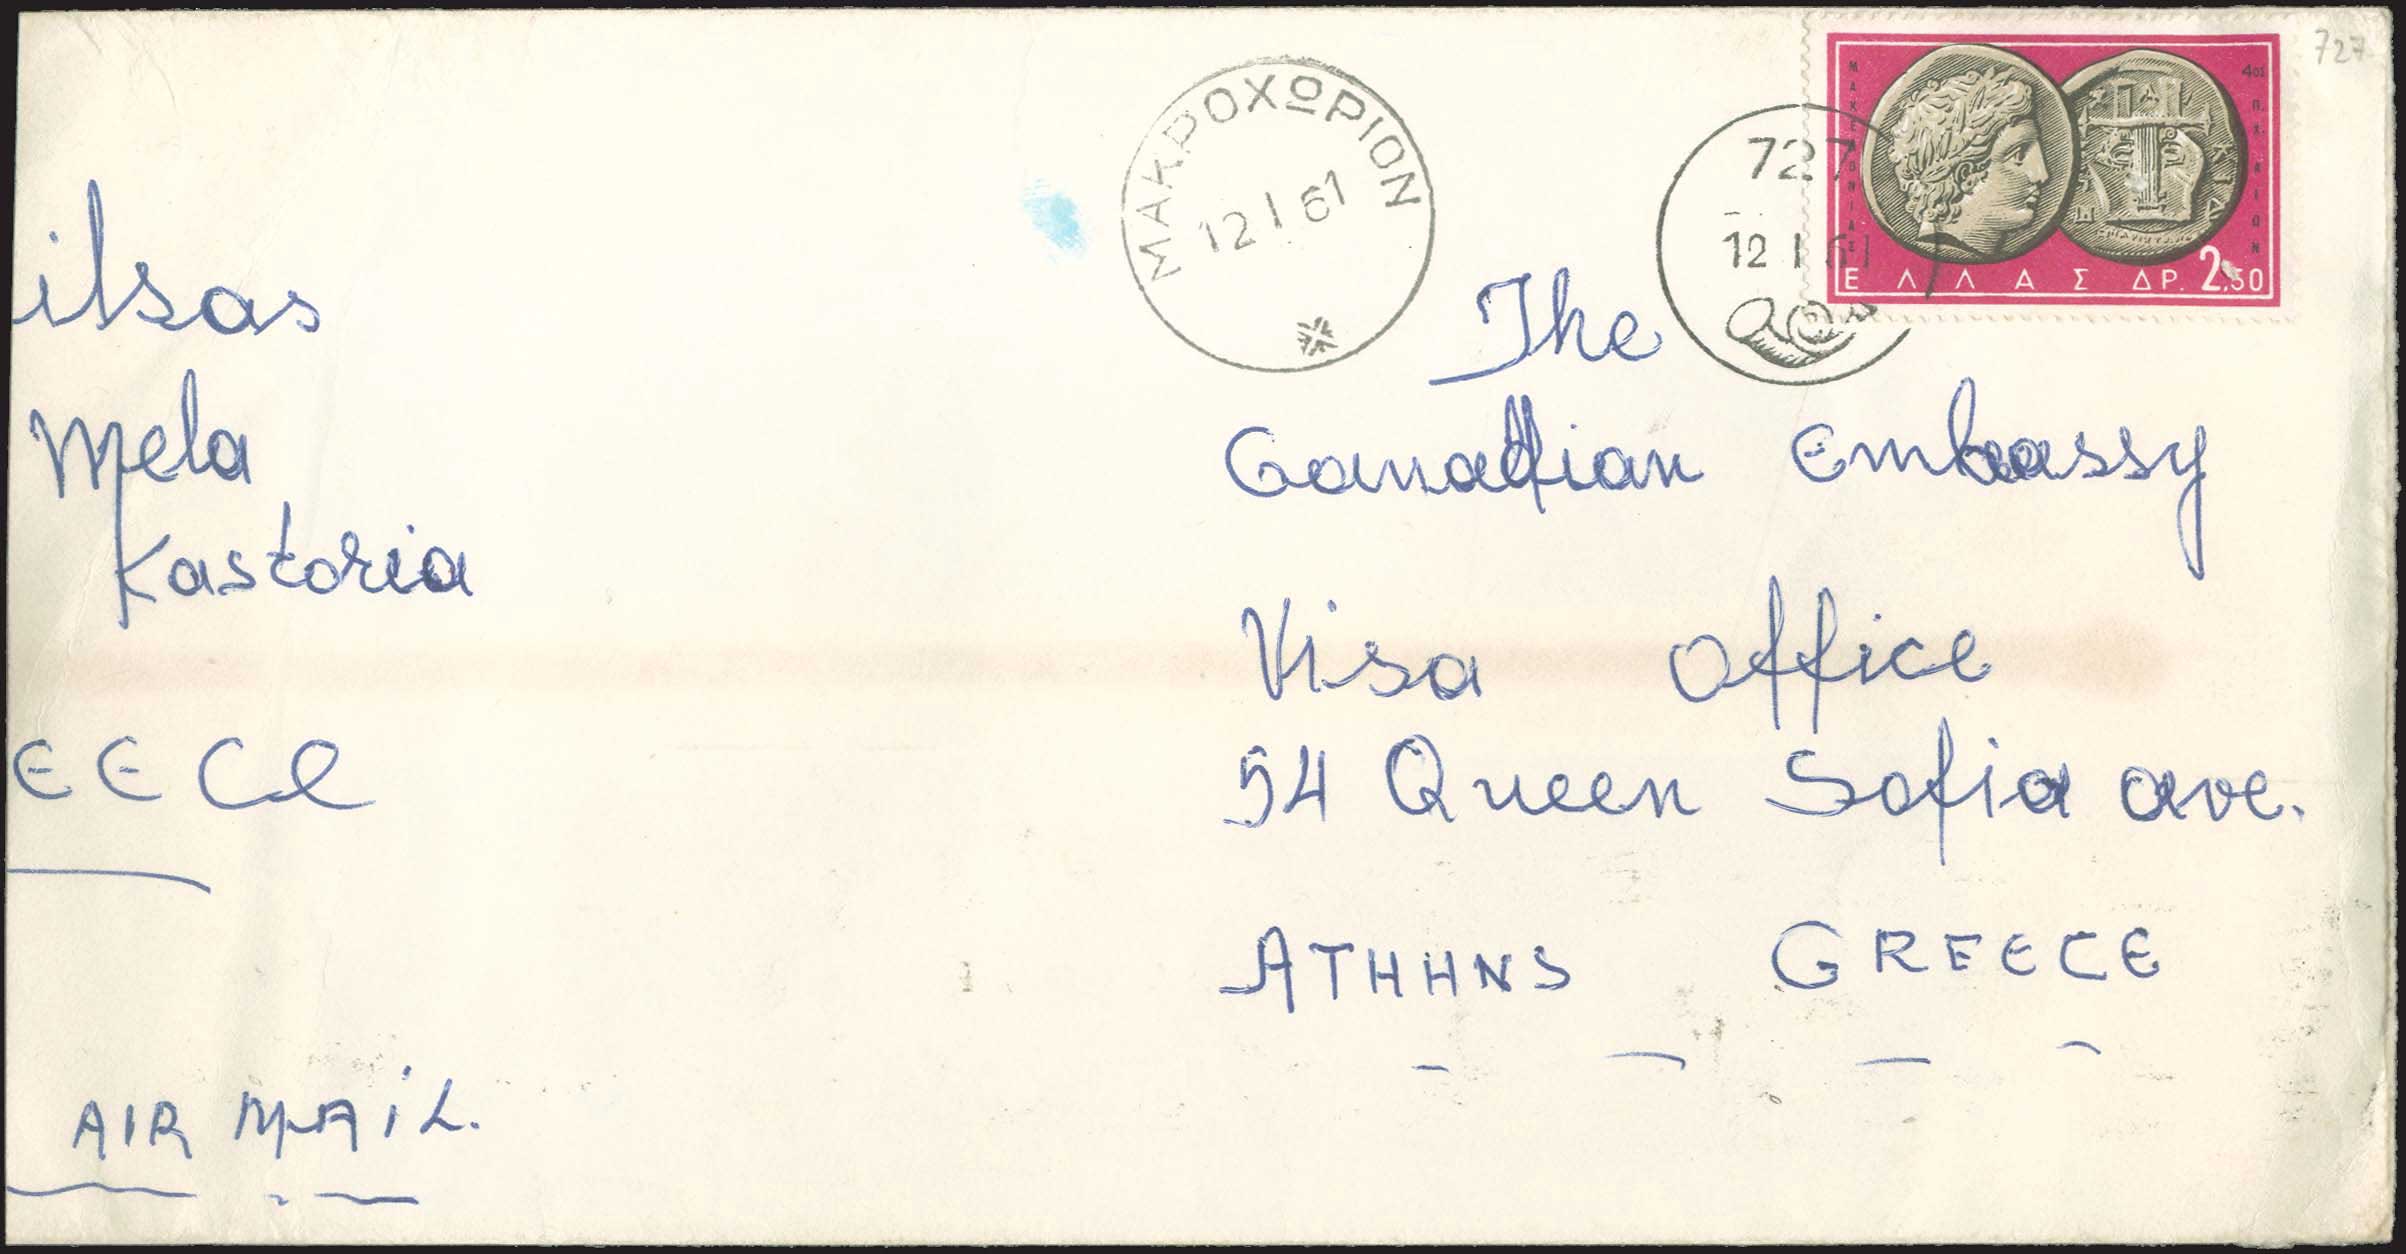 727
ΜΑΚΡΟΧΩΡΙΟΝ
12 Ι 61
727
12 Ι 61
ΜΑΚΕΔΟΝΙΑΣ
4ος Π.Χ. ΑΙΩΝ
ΕΛΛΑΣ ΔΡ. 2,50
ilsas
Mela
Kastoria
EECE
AIR MAIL.
The
Canadian Embassy
Visa Office
54 Queen Sofia ave.
ATHHNS GREECE